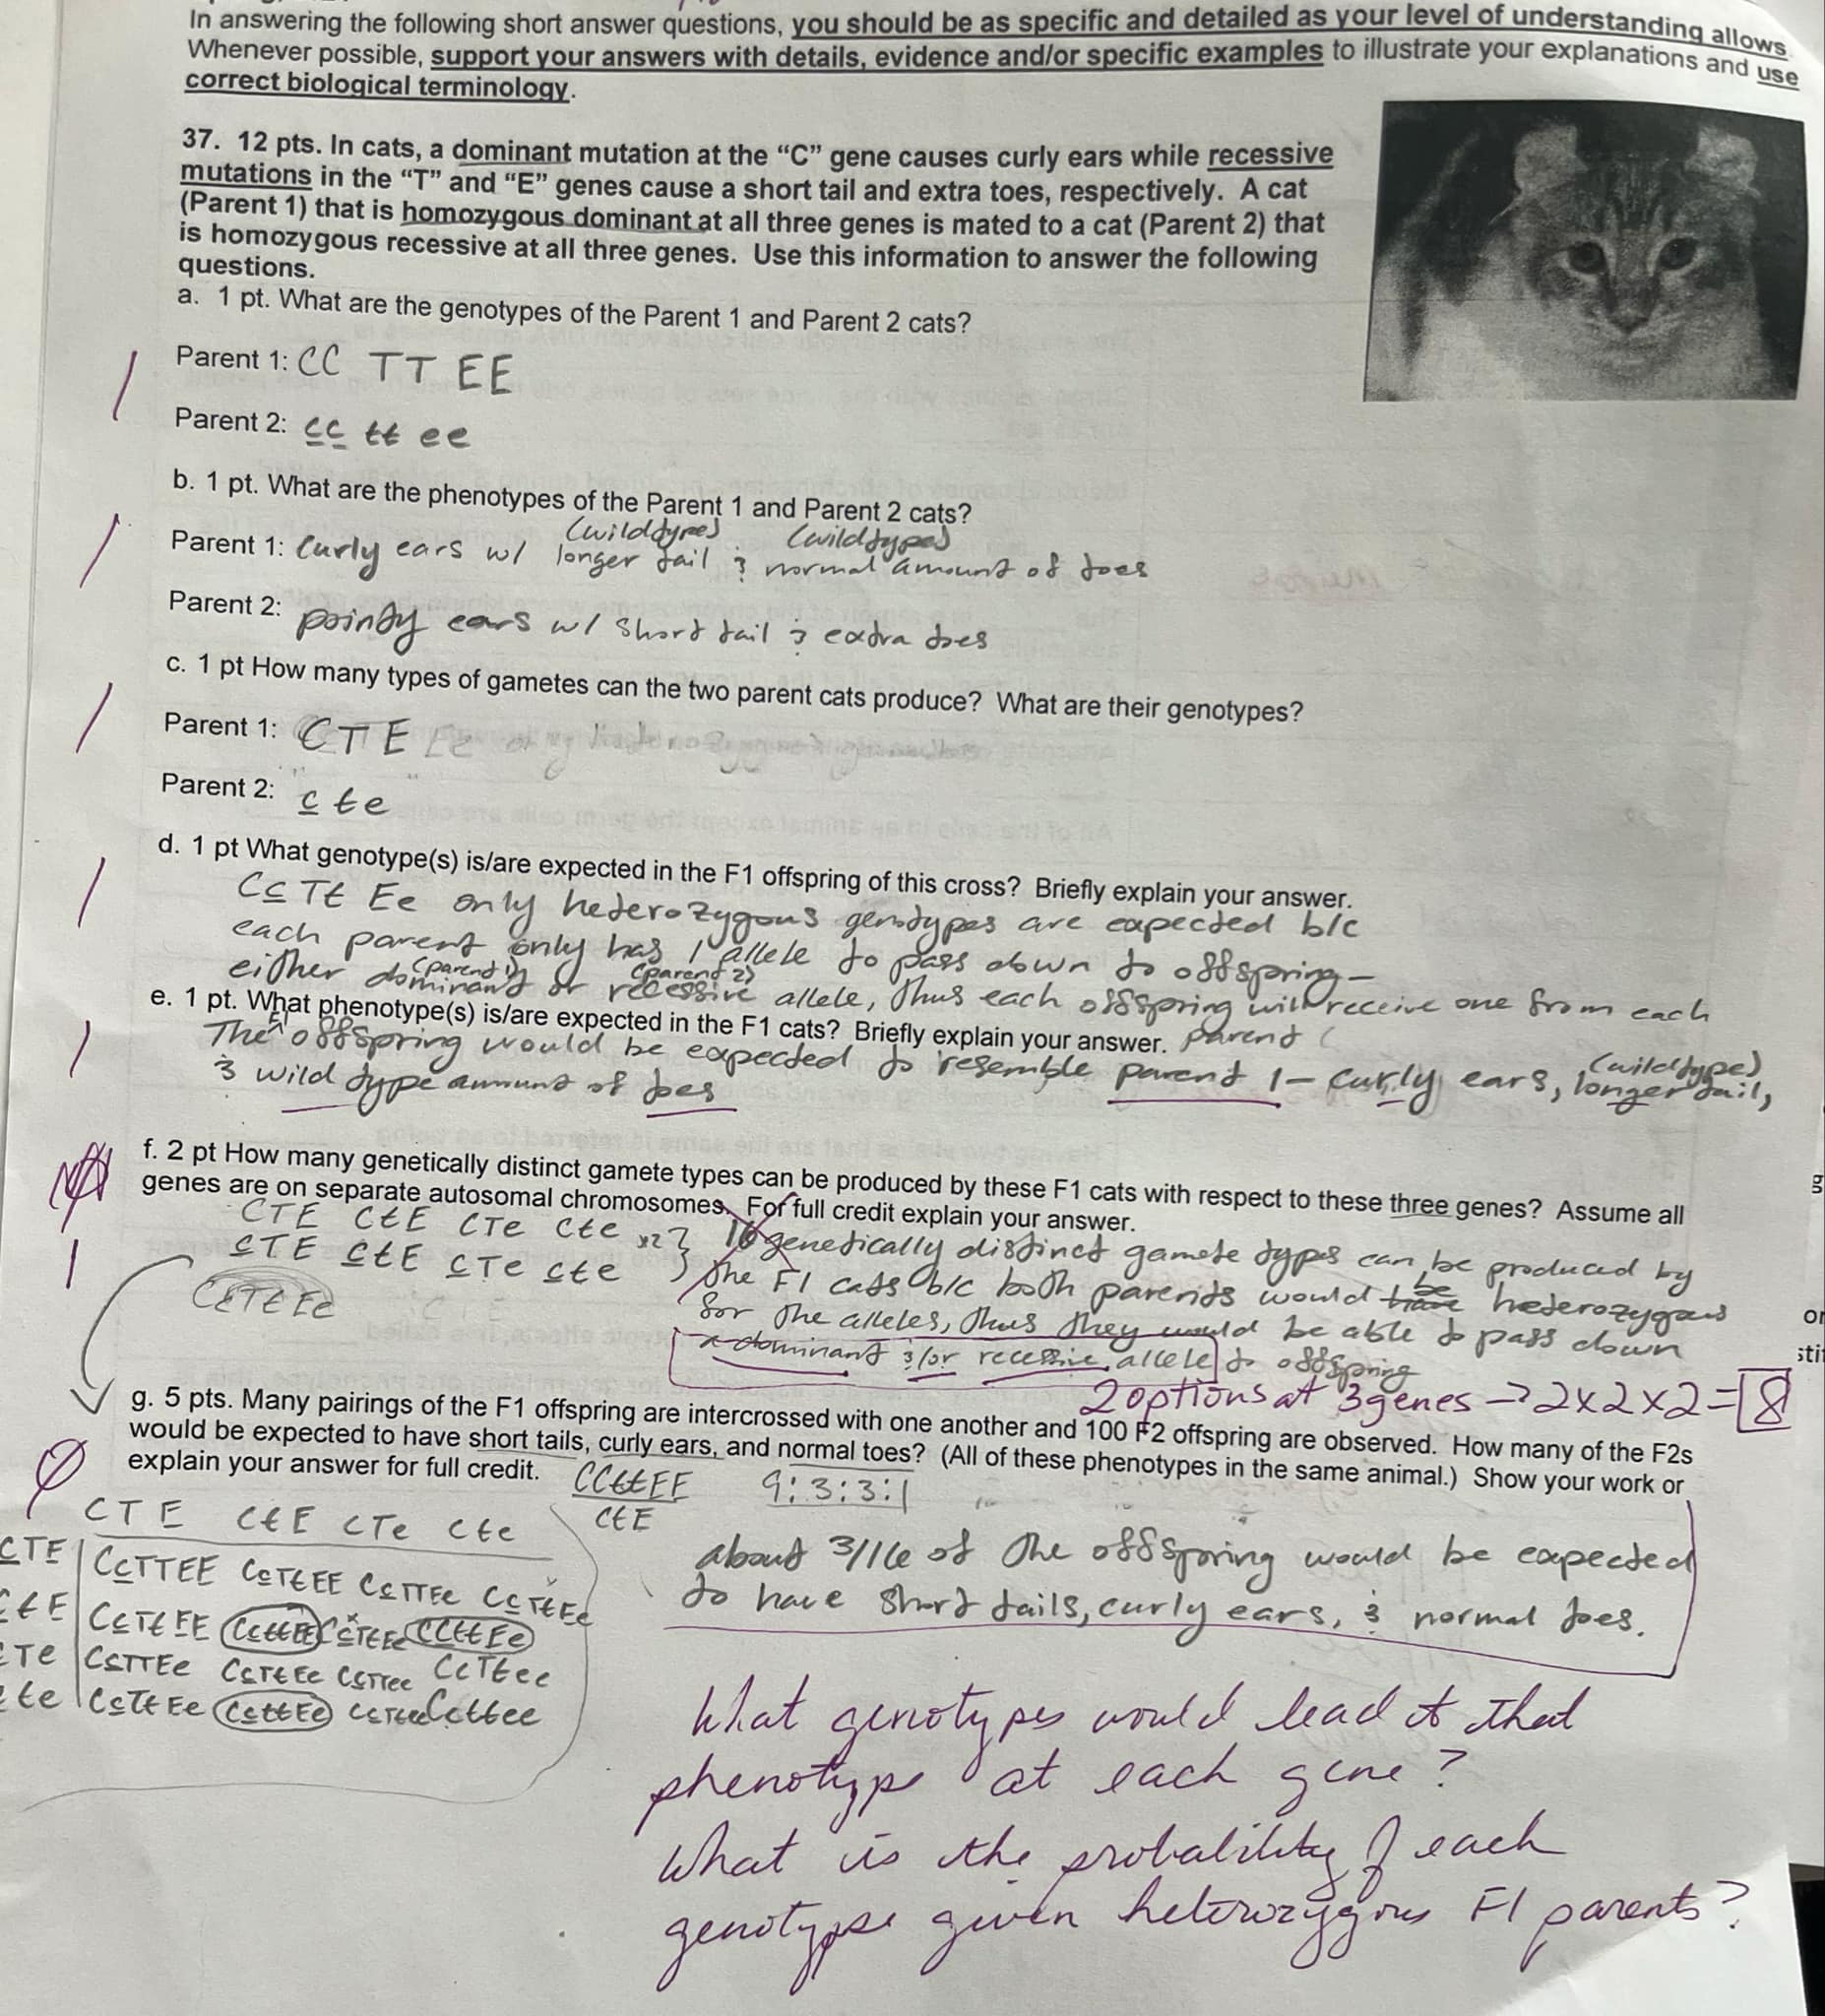 In answering the following short answer questions, you should be as specific and detailed as your level of understanding allows.
Whenever possible, support your answers with details, evidence and/or specific examples to illustrate your explanations and use
correct biological terminology.
37. 12 pts. In cats, a dominant mutation at the “C” gene causes curly ears while recessive
mutations in the “T” and “E” genes cause a short tail and extra toes, respectively. A cat
(Parent 1) that is homozygous dominant at all three genes is mated to a cat (Parent 2) that
is homozygous recessive at all three genes. Use this information to answer the following
questions.
a. 1 pt. What are the genotypes of the Parent 1 and Parent 2 cats?
Parent 1: CC TT EE
Parent 2: cc tt ee
b. 1 pt. What are the phenotypes of the Parent 1 and Parent 2 cats?
(wildtype) (wildtype)
Parent 1: Curly ears w/ longer tail & normal amount of toes
Parent 2: pointy ears w/ short tail & extra toes
c. 1 pt How many types of gametes can the two parent cats produce? What are their genotypes?
Parent 1: CTE
Parent 2: cte
d. 1 pt What genotype(s) is/are expected in the F1 offspring of this cross? Briefly explain your answer.
Cc Tt Ee only heterozygous genotypes are expected b/c
each parent only has 1 allele to pass down to offspring –
(parent 1) (parent 2)
either dominant or recessive allele, thus each offspring will receive one from each
parent
e. 1 pt. What phenotype(s) is/are expected in the F1 cats? Briefly explain your answer.
The F1 offspring would be expected to resemble parent 1 – curly ears, longer tail,
(wildtype)
& wild type amount of toes
f. 2 pt How many genetically distinct gamete types can be produced by these F1 cats with respect to these three genes? Assume all
genes are on separate autosomal chromosomes. For full credit explain your answer.
CTE CtE CTe Cte x2
cTE ctE cTe cte
16 genetically distinct gamete types can be produced by
the F1 cats b/c both parents would be heterozygous
for the alleles, thus they would be able to pass down
a dominant &/or recessive allele to offspring
CcTtEe
2 options at 3 genes → 2x2x2 = 8
g. 5 pts. Many pairings of the F1 offspring are intercrossed with one another and 100 F2 offspring are observed. How many of the F2s
would be expected to have short tails, curly ears, and normal toes? (All of these phenotypes in the same animal.) Show your work or
explain your answer for full credit.
CCttEE
CtE
9:3:3:1
about 3/16 of the offspring would be expected
to have short tails, curly ears, & normal toes.
CTE CtE CTe Cte
cTE CcTTEE CcTtEE CcTTEe CcTtEe
ctE CcTtEE CcttEE CcTtEe CcttEe
cTe CcTTEe CcTtEe CcTTee CcTtee
cte CcTtEe CcttEe CcTtee Ccttee
What genotypes would lead to that
phenotype at each gene?
What is the probability of each
genotype given heterozygous F1 parents?